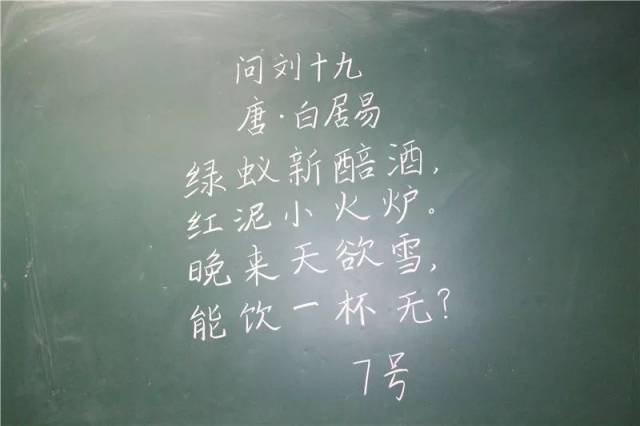 问刘十九
唐·白居易
绿蚁新醅酒,
红泥小火炉。
晚来天欲雪,
能饮一杯无?
7号